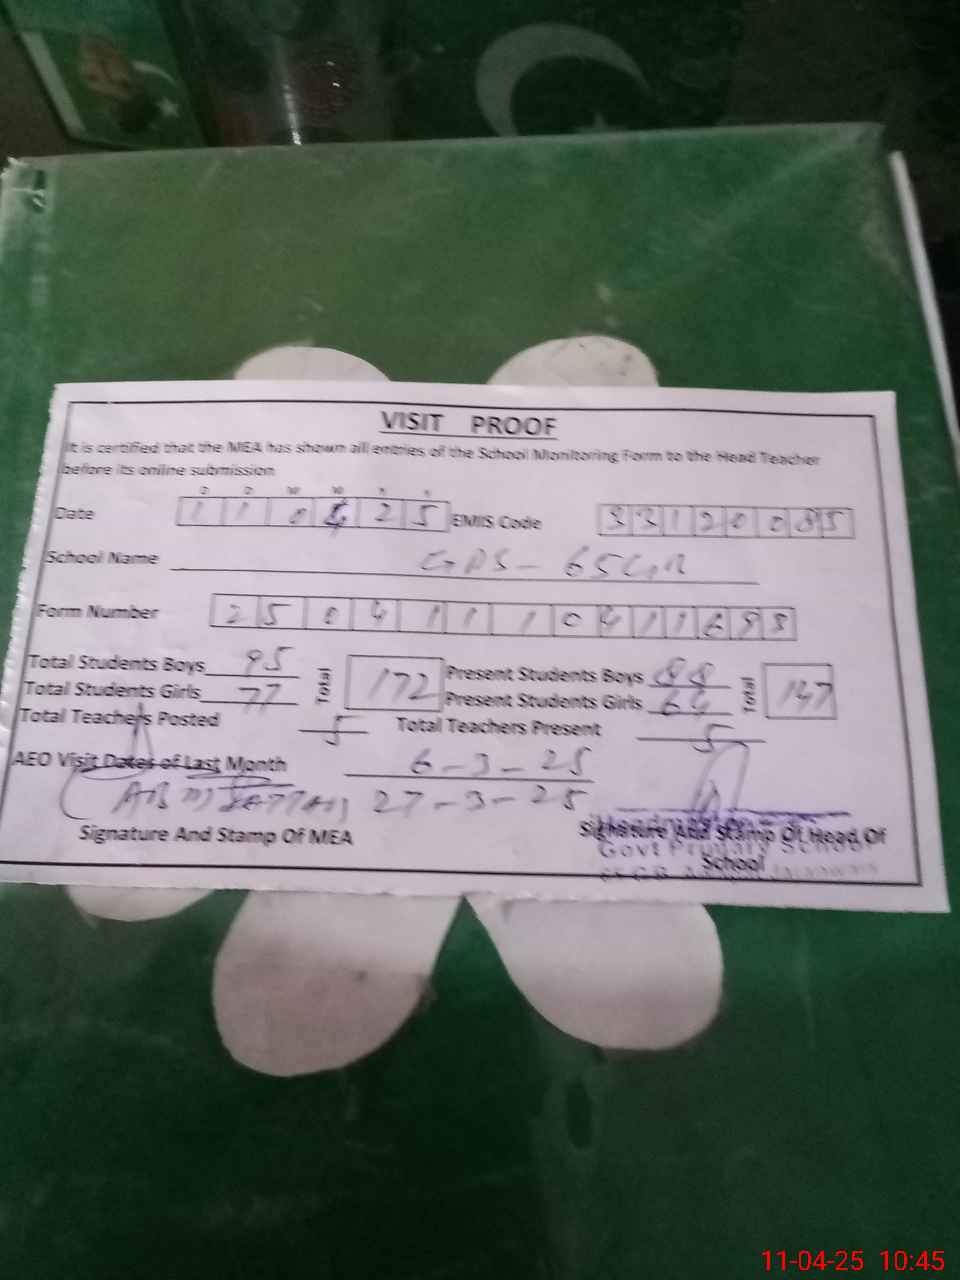 VISIT PROOF
It is certified that the MEA has shown all entries of the School Monitoring Form to the Head Teacher
before its online submission
D D M M Y Y
Date 1 1 0 4 2 5 EMIS Code 3 3 1 2 0 0 8 5
School Name GPS - 65 GB
Form Number 2 5 0 4 1 1 1 0 4 1 1 6 9 3
Total Students Boys 95 Total 172 Present Students Boys 88 Total
Total Students Girls 77 Present Students Girls 64
Total Teachers Posted 5 Total Teachers Present 5
AEO Visit Dates of Last Month 6-3-25
27-3-25
Signature And Stamp Of MEA Signature And Stamp Of Head Of
School
Govt Primary School
11-04-25 10:45